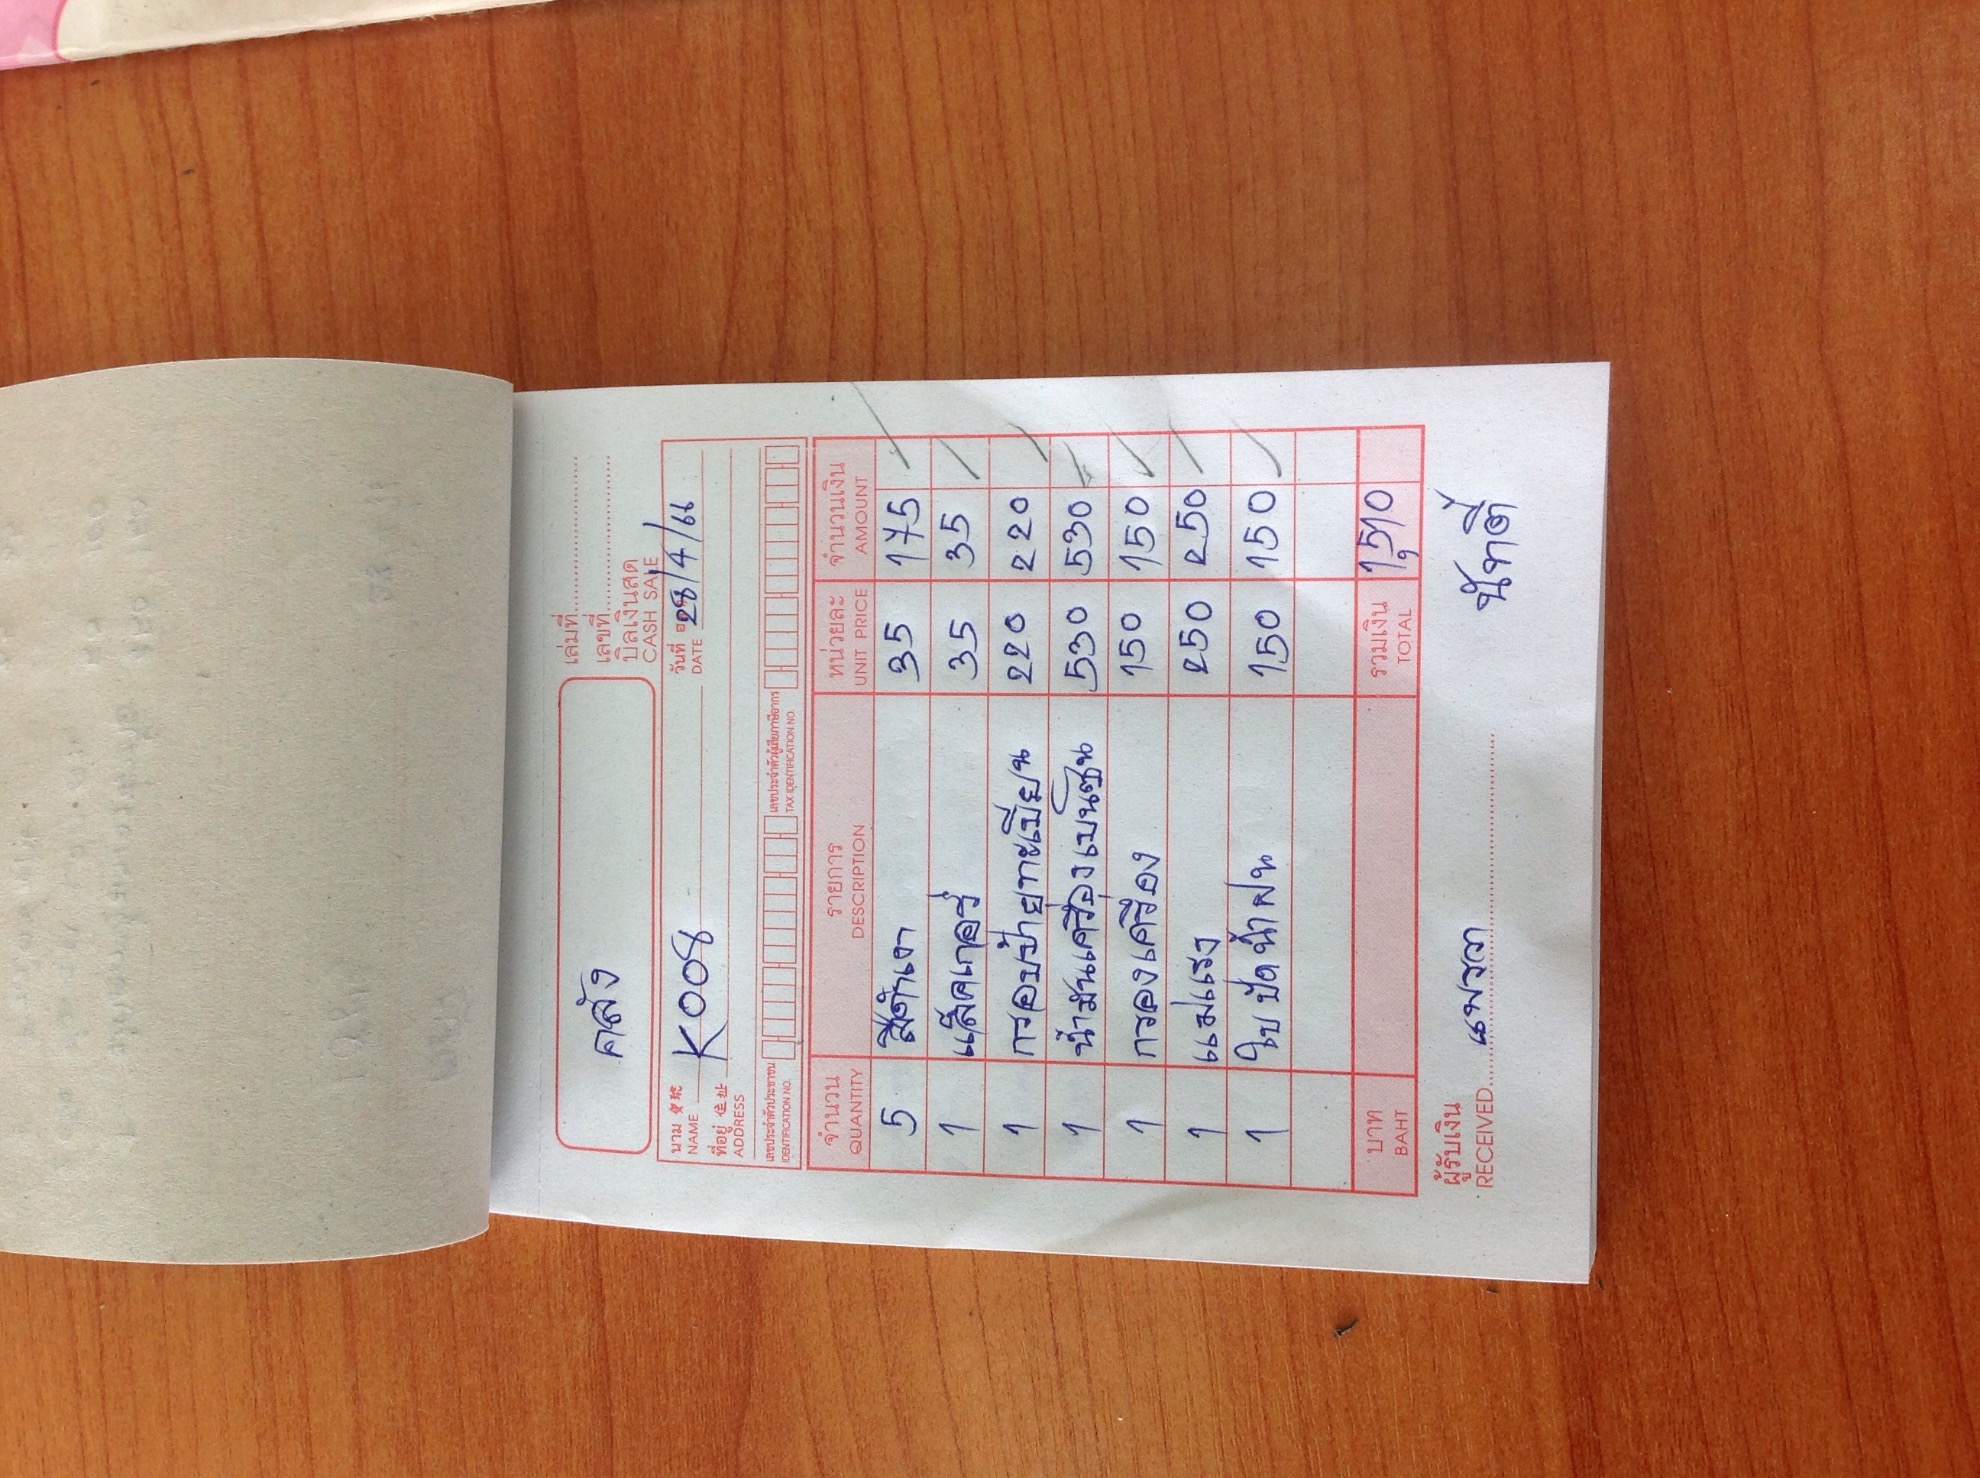 คลัง
เล่มที่
เลขที่
บิลเงินสด
CASH SALE
นาม
NAME K008
วันที่
DATE 28/4/66
ที่อยู่ 住址
ADDRESS
เลขประจำตัวประชาชน
IDENTIFICATION NO.
เลขประจำตัวผู้เสียภาษีอากร
TAX IDENTIFICATION NO.
จำนวน รายการ หน่วยละ จำนวนเงิน
QUANTITY DESCRIPTION UNIT PRICE AMOUNT
5 สีดำเงา 35 175
1 แล็คเกอร์ 35 35
1 กรอบป้ายทะเบียน 220 220
1 น้ำมันเครื่องเบนซิน 530 530
1 กรองเครื่อง 150 150
1 แม่แรง 250 250
1 ใบปัดน้ำฝน 150 150
บาท รวมเงิน 1,510
BAHT TOTAL
ผู้รับเงิน
RECEIVED แพรวา